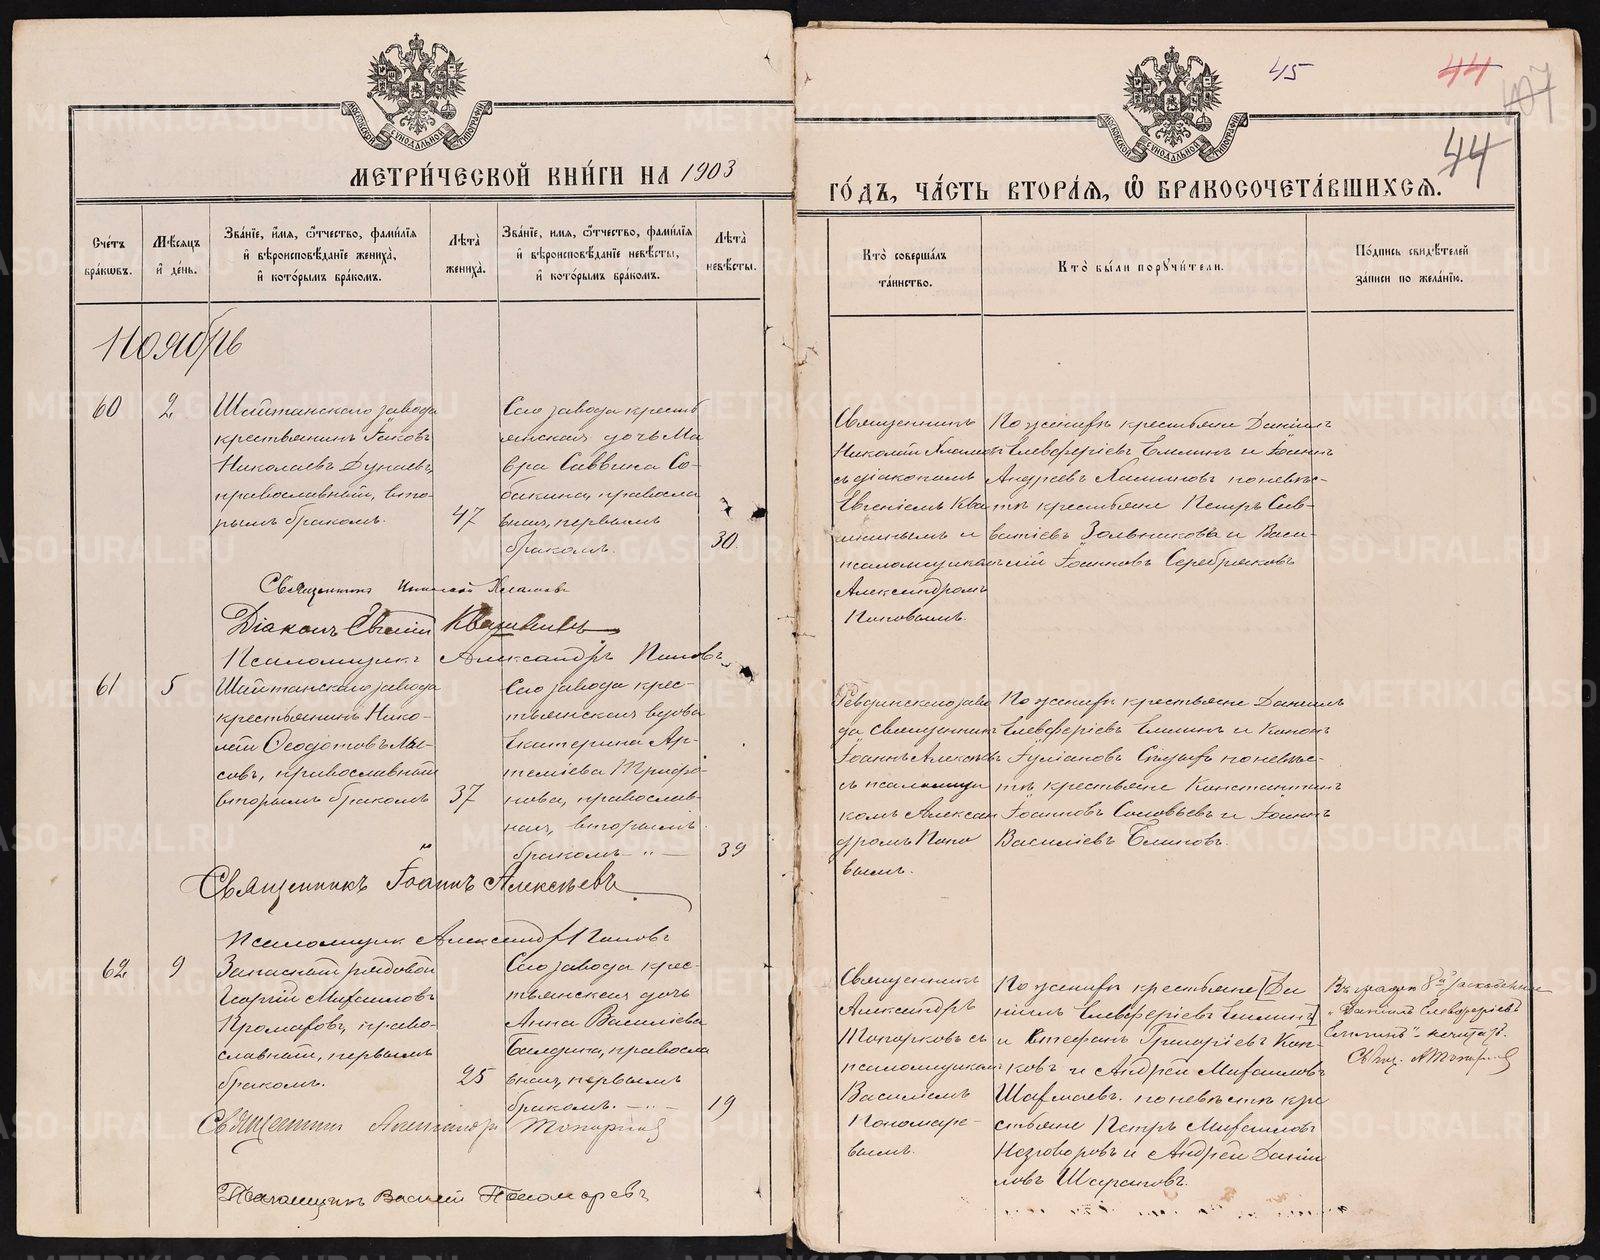 45
44
107
44
МОСКОВСКОЙ СѴНОДАЛЬНОЙ ТИПОГРАФІИ
МОСКОВСКОЙ СѴНОДАЛЬНОЙ ТИПОГРАФІИ
МЕТРИ́ЧЕСКОЙ КНИ́ГИ НА 1903
ГО́ДЪ, ЧА́СТЬ ВТОРА́Я, Ѽ БРАКОСОЧЕТА́ВШИХСЯ.
Сче́тъ бра́ковъ.
Мѣ́сяцъ и де́нь.
Зва́нїе, и́мя, ѻ҆́тчество, фами́лїя
и вѣроисповѣ́данїе жениха̀,
и кото́рымъ бра́комъ.
Лѣта̀ жениха̀.
Зва́нїе, и́мя, ѻ҆́тчество, фами́лїя
и вѣроисповѣ́данїе невѣ́сты,
и кото́рымъ бра́комъ.
Лѣта̀ невѣ́сты.
Кто̀ соверша́лъ та́инство.
Кто̀ бы́ли порꙋчи́тели.
По́дпись свидѣ́телей
за́писи по жела́нїю.
Ноябрь
60
2
Шайтанскаго завода
крестьянинъ Іаковъ
Николаевъ Дунаевъ,
православный, вто-
рымъ бракомъ.
47
Сего завода кресть
янская дочь Ма
вра Саввина Со-
бакина, правосла
вная, первымъ
бракомъ.
30.
Священникъ
Николай
съ діакономъ
Евгеніемъ Ква
шнинымъ и
псаломщикомъ
Александромъ
Поповымъ.
По женихѣ крестьяне Даніилъ
Елевферіевъ Емлинъ и Іоаннъ
Андреевъ поневѣс-
тѣ крестьяне Петръ Сав-
ватіевъ и Васи-
лій Іоанновъ Серебряковъ
Священникъ Николай
Діаконъ Евгеній Квашнинъ
Псаломщикъ Александръ Поповъ
61
5
Шайтанскаго завода
крестьянинъ Нико-
лай Ѳеодотовъ Мы-
совъ, православный
вторымъ бракомъ
37
Сего завода крес-
тьянская вдова
Екатерина Ар-
теміева Трифо-
нова, православ-
ная, вторымъ
бракомъ – „ –
39
Ревдинскаго заво
да священникъ
Іоаннъ Алексѣевъ
съ псаломщи
комъ Алексан
дромъ Попо
вымъ.
По женихѣ крестьяне Даніилъ
Елевферіевъ Емлинъ и Кононъ
Іуліановъ поневѣс-
тѣ крестьяне Константинъ
Іоанновъ Соловьевъ и Іоаннъ
Василіевъ Емлинъ.
Священникъ Іоаннъ Алексѣевъ
Псаломщик Александръ Поповъ
62
9
Запасный рядовой
Георгій Михаиловъ
православный, первымъ
бракомъ.
25
Сего завода крес-
тьянская дочь
Анна Василіева
Балдина, правосла
вная, первымъ
бракомъ. – „ –
19
Священникъ
Александръ
Топорковъ съ
псаломщикомъ
Василіемъ
Пономаре-
вымъ.
По женихѣ крестьяне [Да
ніилъ Елевферіевъ Емлинъ]
и Стефанъ Григоріевъ Кон-
ковъ и Андрей Михаиловъ
Шахмаевъ. поневѣстѣ кре
стьяне Петръ Михаиловъ
Незговоровъ и Андрей Даніи
ловъ Шараповъ.
Въ графѣ 8й
„Даніилъ Елевферіевъ
Емлинъ“ –
Свящ. А Топорковъ
Священникъ Александръ Топорковъ
Псаломщикъ Василій Пономаревъ
METRIKI.GASO-URAL.RU